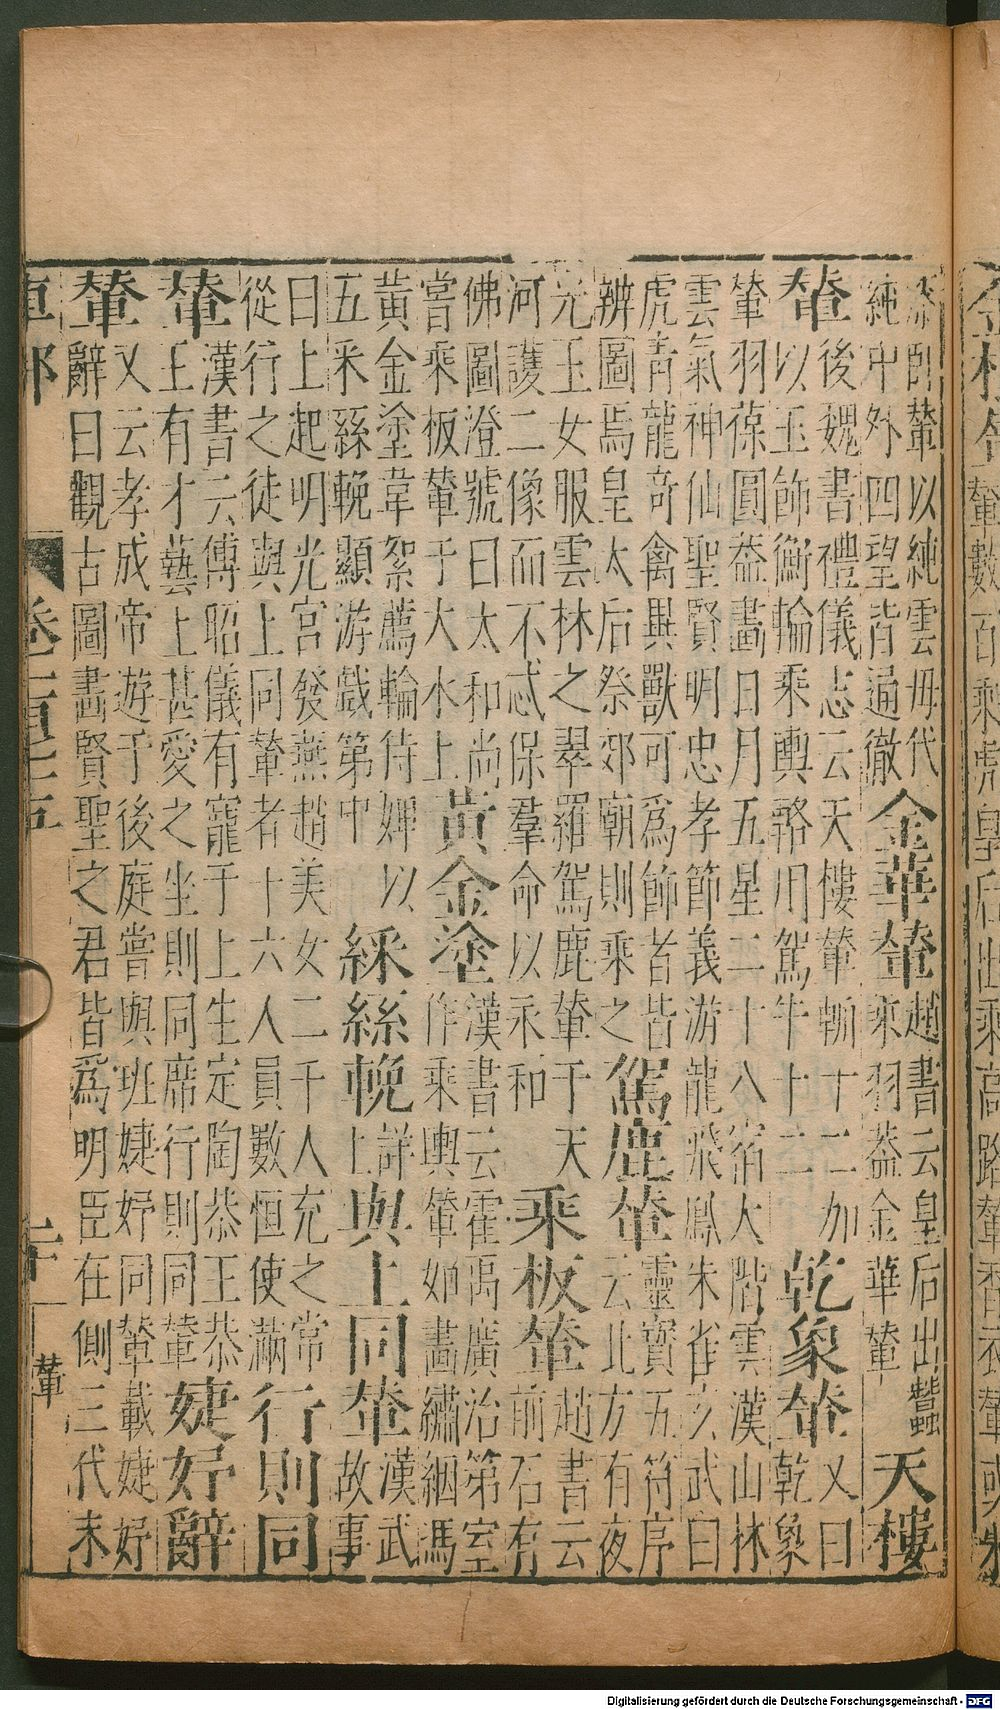 卧輦以純雲母代
純中外四望皆通徹
金華輦
趙書云皇后出蠶
乘羽蓋金華輦
天樓
輦
後魏書禮儀志云天樓輦輈十二加
以玉飾衡輪乘輿輅用駕牛十二
乾象輦
又曰
乾象
輦羽葆圓蓋畫日月五星二十八宿天階雲漢山林
雲氣神仙聖賢明忠孝節義游龍飛鳳朱雀玄武曰
虎青龍奇禽異獸可爲飾者皆
辨圖焉皇太后祭郊廟則乘之
駕鹿輦
靈寶五符序
云北方有夜
光玉女服雲林之翠羅駕鹿輦于天
河護二像而不忒保羣命以永和
乘板輦
趙書云
前石有
佛圖澄號曰太和尚
嘗乘板輦于大水上
黃金塗
漢書云霍禹廣治第室
作乘輿輦如畫繡絪馮
黃金塗韋絮薦輪侍婢以
五釆絲輓顯游戲第中
綵絲輓
詳
上
與上同輦
漢武
故事
曰上起明光宮發燕趙美女二千人充之常
從行之徒與上同輦者十六人員數恒使滿
行則同
輦
漢書云傅昭儀有寵于上生定陶恭王恭
王有才藝上甚愛之坐則同席行則同輦
婕妤辭
輦
又云孝成帝遊于後庭嘗與班婕妤同輦載婕妤
辭曰觀古圖畫賢聖之君皆爲明臣在側三代末
車部 卷一百七十五 二十 輦
Digitalisierung gefördert durch die Deutsche Forschungsgemeinschaft - DFG